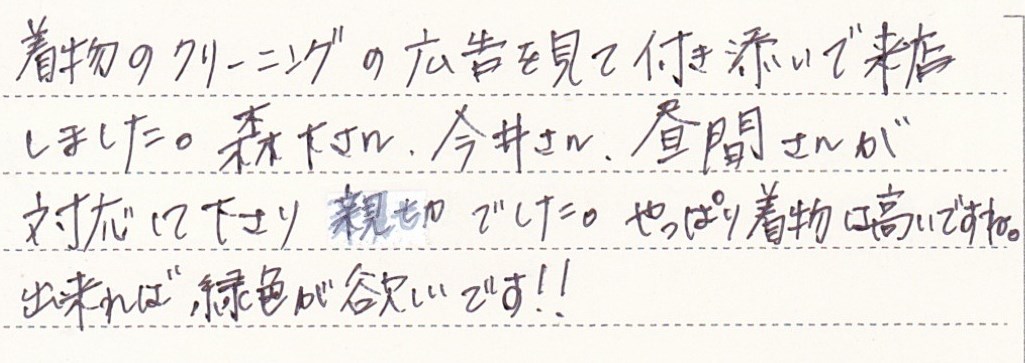 着物のクリーニングの広告を見て付き添いで来店
しました。森下さん、今井さん、昼間さんが
対応して下さり 親切でした。やっぱり着物は高いですね。
出来れば、緑色が欲しいです!!